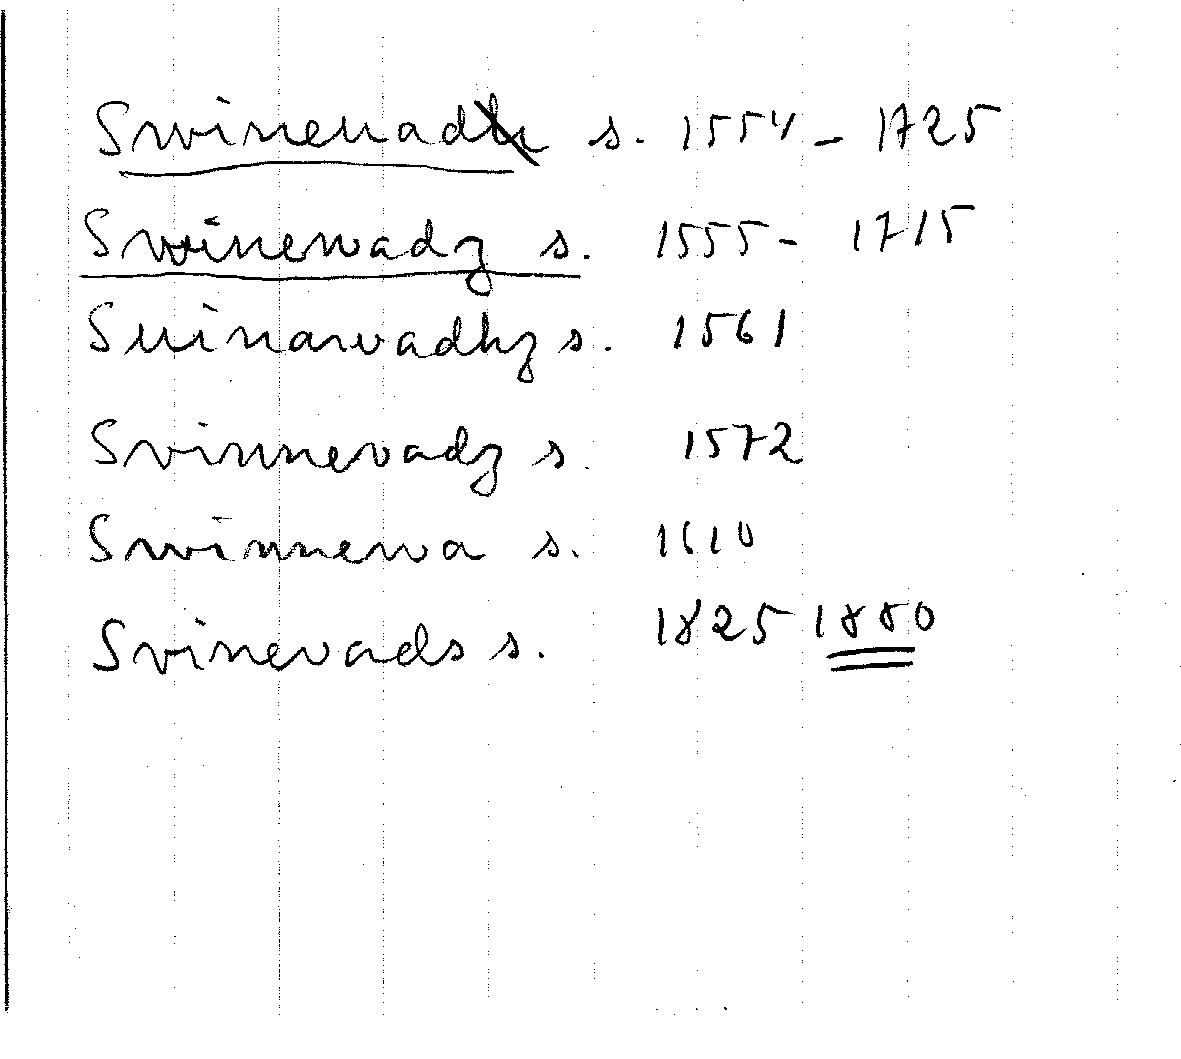 Swineuad s. 1554 - 1725
Swinewadz s. 1555 - 1715
Suinawadhz s. 1561
Svinnevadz s. 1572
Swinnewa s. 1610
Svinevads s. 1825 1880